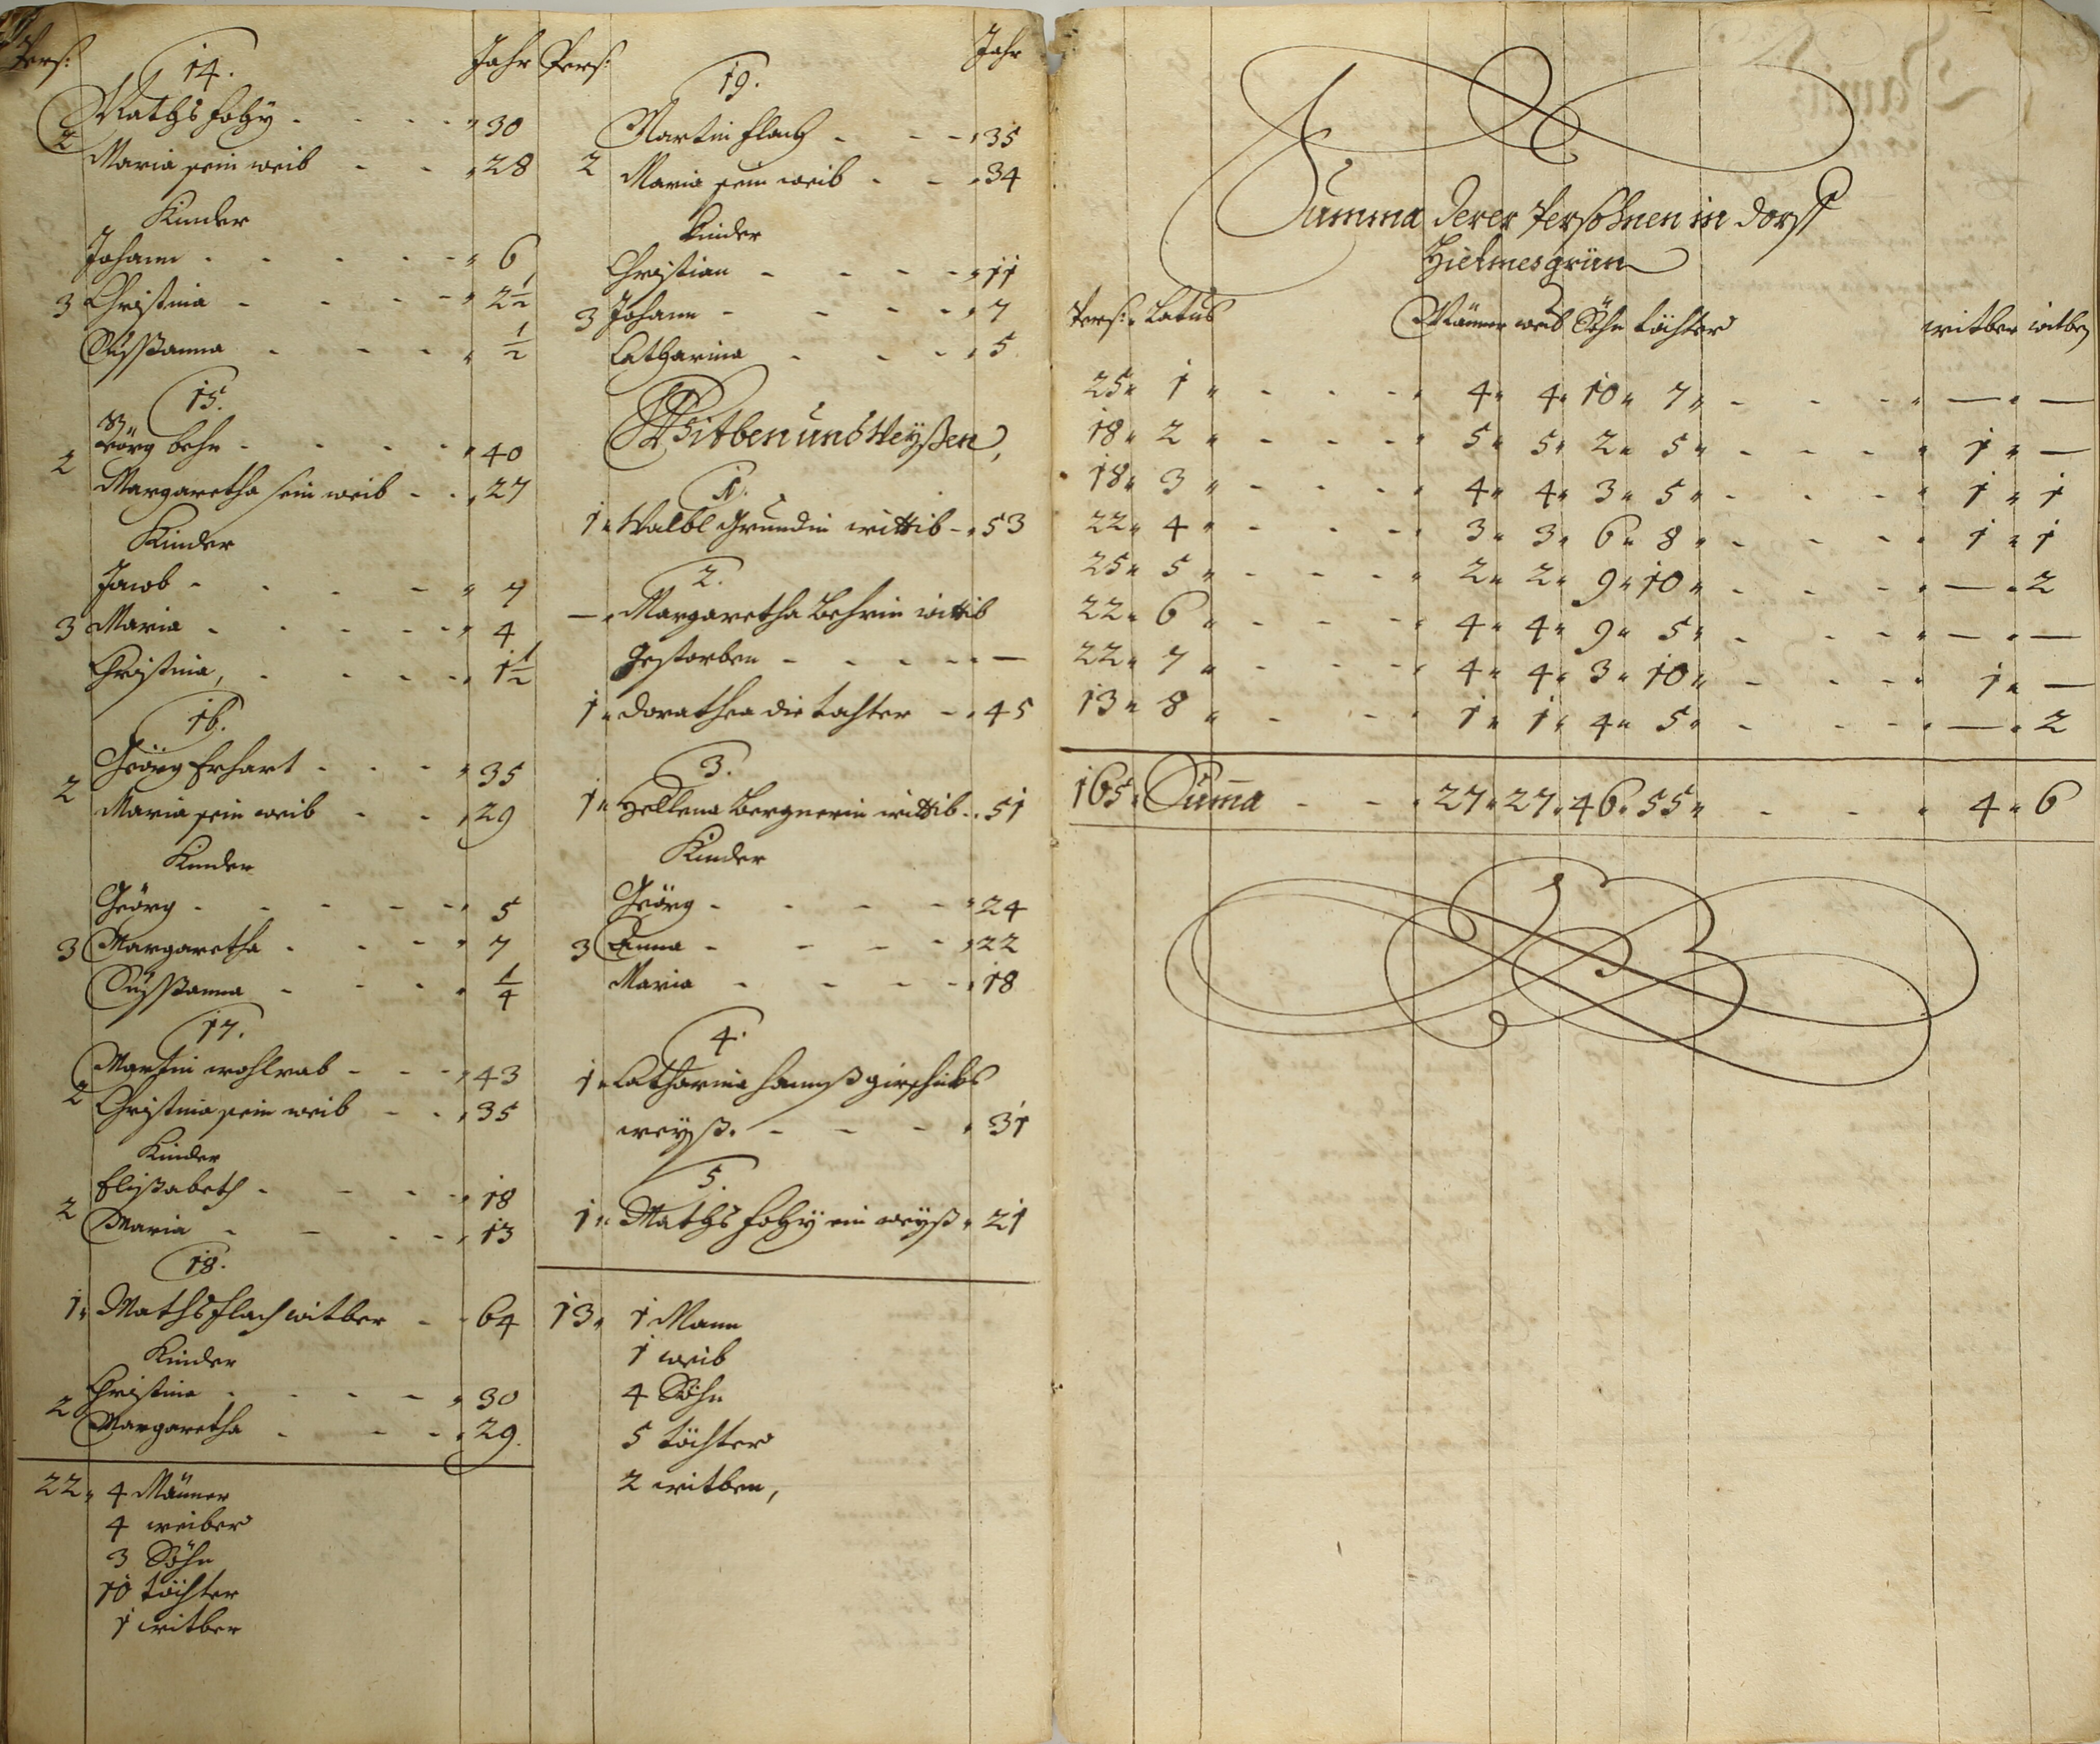 Pers: Jahr
14.
Mathß Fohÿ - - - " 30
2
Maria sein weib - - " 28
Kinder
Johann - - - - " 6
3 Christina - - - - " 2 1/2
Sußßanna - - - " 1/2
15.
Görg behr - - - - " 40
2
Margaretha sein weib - - " 27
Kinder
Jacob - - - - " 7
3 Maria - - - - " 4
Christina, - - - - " 1 1/2
16.
Geörg Erhart - - - " 35
2
Maria sein weib - - " 29
Kinder
Geörg - - - - - " 5
3 Margaretha - - - " 7
Sußßanna - - - " 1/4
17.
Martin wohlrab - - - " 43
2
Christina sein weib - - " 35
Kinder
Elißabeth - - - - " 18
2
Maria - - - - " 13
18.
1" Mathß Flach witber - - 64
Kinder
Christina - - - - " 30
2
Margaretha - - - " 29.
22" 4 Männer
4 weiber
3 Söhn
10 töchter
1 witber
Pers: Jahr
19.
Martin Flach - - - " 35
2 Maria sein weib - - " 34
Kinder
Christian - - - - " 11
3 Johann - - - - " 7
Catharina - - - " 5
Witben und Weÿßen,
1.
1" Walbl Grundin wittib - " 53
2.
— " Margaretha Behrin wittib
Gestorben - - - - - —
1" dorathea die tochter - " 45
3.
1" Hellena Bergnerin wittib - " 51
Kinder
Geörg - - - - " 24
3 Anna - - - - " 22
Maria - - - - " 18
4.
1" Catharina
weÿß. - - - " 31
5.
1" Mathß Fohÿ ein weÿß " 21
13" 1 Mann
1 weib
4 Söhn
5 töchter
2 witben,
Summa derer Persohnen in dorff
Hielmesgrün
Pers: Latus Männer weib Söhn töchter witber witben
25" 1 " - - - " 4" 4" 10" 7" - - - " — " —
18" 2 " - - - " 5" 5" 2" 5" - - - " 1 " —
18" 3 " - - - " 4" 4" 3" 5" - - - " 1 " 1
22" 4 " - - - " 3" 3" 6" 8" - - - " 1 " 1
25" 5 " - - - " 2" 2" 9" 10" - - - " — " 2
22" 6 " - - - " 4" 4" 9" 5" - - - " — " —
22" 7 " - - - " 4" 4" 3" 10" - - - " 1 " —
13" 8 " - - - " 1" 1" 4" 5" - - - " — " 2
165" Suma - - " 27" 27" 46" 55" - - " 4" 6